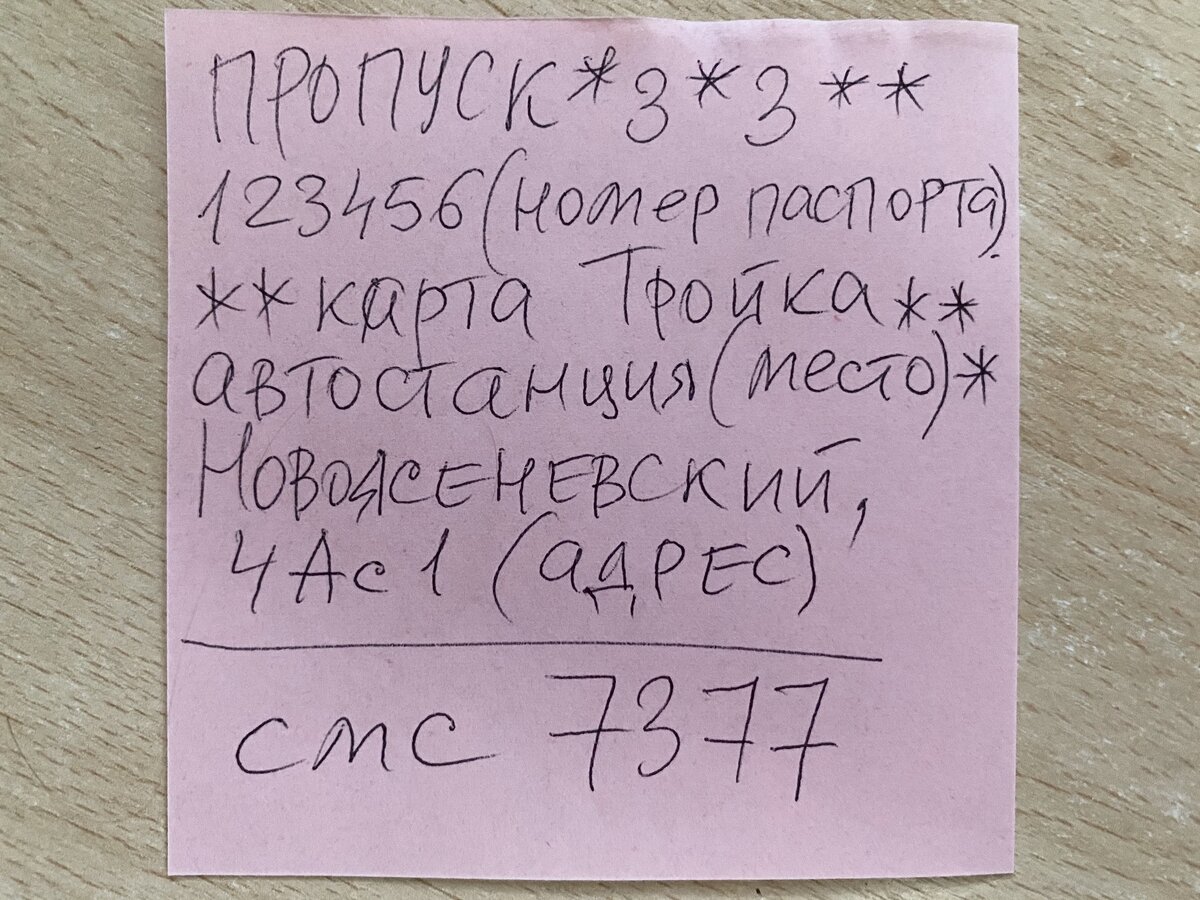 ПРОПУСК*3*3**
123456(номер паспорта)
**карта Тройка**
автостанция(место)*
Новоясеневский,
4Ас1 (адрес)
смс 7377